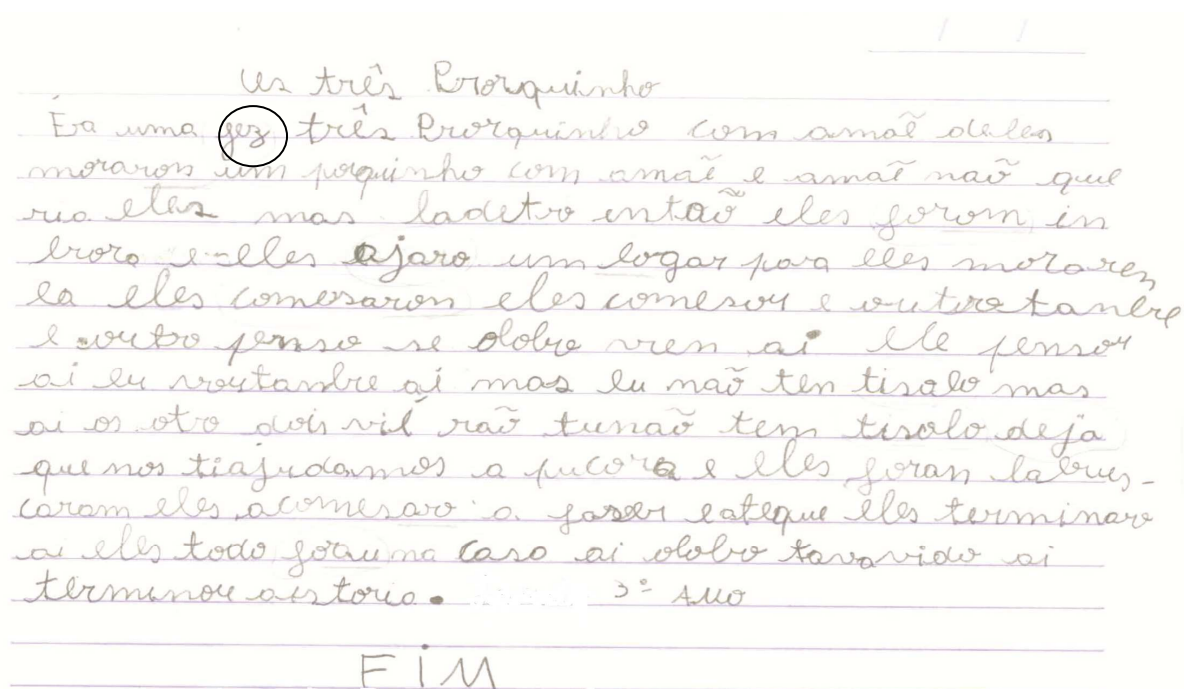 Us três Prorquinho
Éra uma fez três Prorquinho com amaē deles
moraron um poquinho com amaē e amaē naõ que
ria eles mas ladetro entaõ eles forom in
bora e elles ajaro um logar para eles moraren
la eles comesaron eles comesou e outro tanbre
e outro penso se olobo vren ai ele pensou
ai eu voutanbre ai mas eu naõ ten tisolo mas
ai os oto dois vil raõ tunaõ tem tisolo deja
que nos tiajudamos a pucora e eles foran labus-
caram eles acomesaro a faser eateque eles terminaro
ai eles todo forauma casa ai olobo tavavido ai
terminou aistoria. 3º ANO
FIM